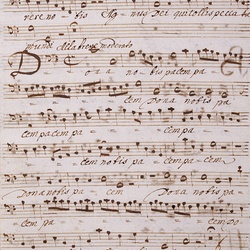 rere nobis Agnus Dei qui tollis pecca
Alla breve moderato
Dona nobis pacem pa
cem Dona nobis pa
cem pacem pa
cem nobis pa cem pacem
Dona nobis pa cem Dona nobis pa
cem pa cem